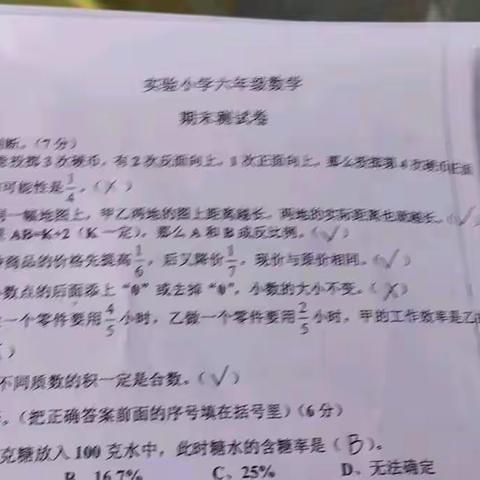 实验小学六年级数学
期末测试卷
判断。(7分)
投掷3次硬币,有2次反面向上,1次正面向上,那么投掷第4次硬币正面
可能性是1/4。(×)
同一幅地图上,甲乙两地的图上距离越长,两地的实际距离也就越长。(√)
AB=K+2(K一定),那么A和B成反比例。(√)
商品的价格先提高1/6,后又降价1/7,现价与原价相同。(√)
数点的后面添上“0”或去掉“0”,小数的大小不变。(×)
一个零件要用4/5小时,乙做一个零件要用2/5小时,甲的工作效率是乙
)
不同质数的积一定是合数。(√)
(把正确答案前面的序号填在括号里)(6分)
克糖放入100克水中,此时糖水的含糖率是(B)。
B、16.7% C、25% D、无法确定